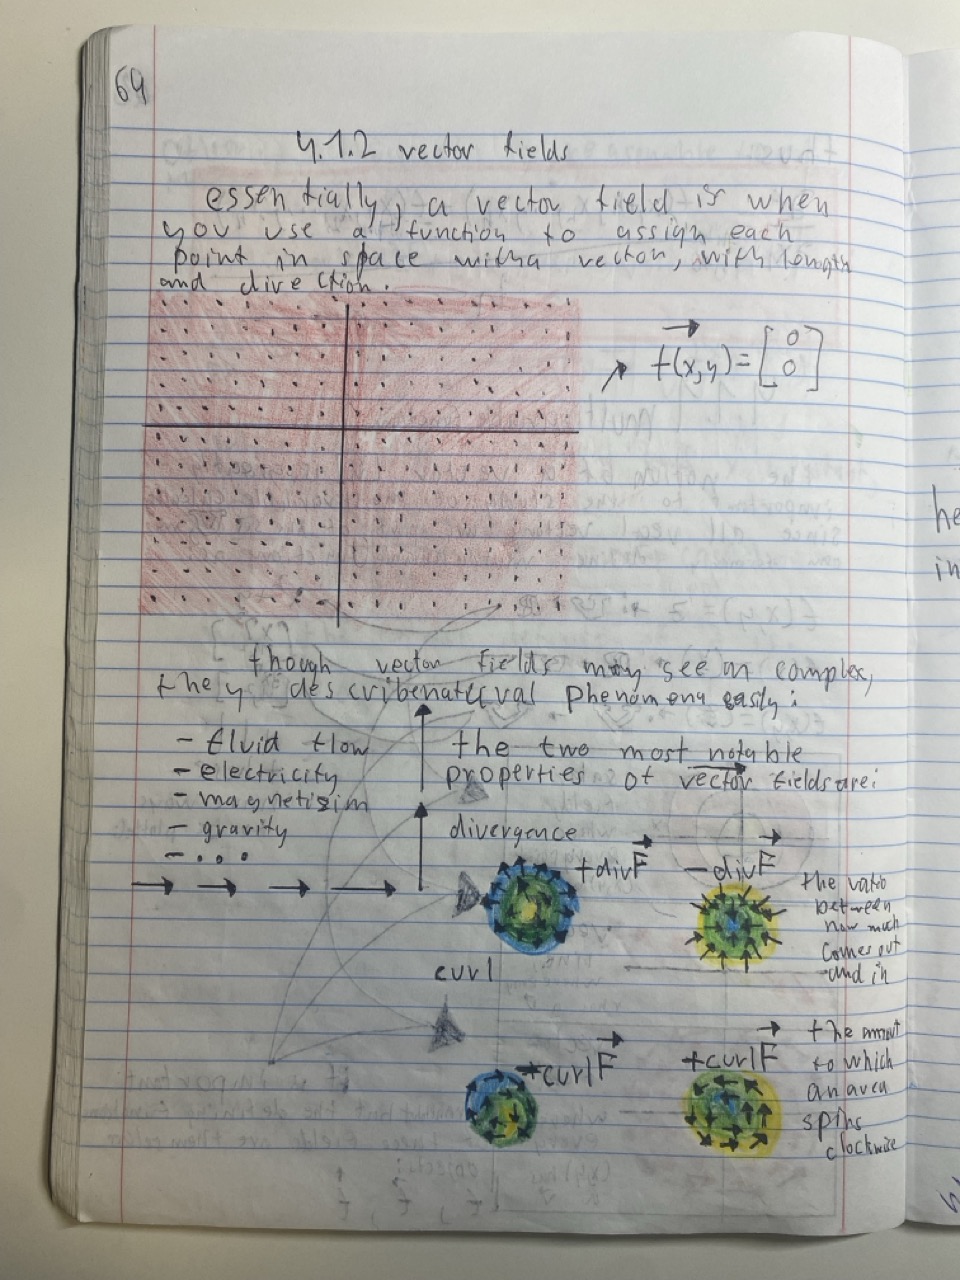 64
4.1.2 vector fields
essentially, a vector field is when
you use a function to assign each
point in space with a vector, with length
and direction.
f(x,y)=[0
0]
though vector fields may seem complex,
they describe natural phenomena easily:
- fluid flow
- electricity
- magnetism
- gravity
- ...
the two most notable
properties of vector fields are:
divergence
+divF
-divF
the ratio
between
how much
comes out
and in
curl
+curlF
+curlF
the amout
to which
an area
spins
clockwise
he
in